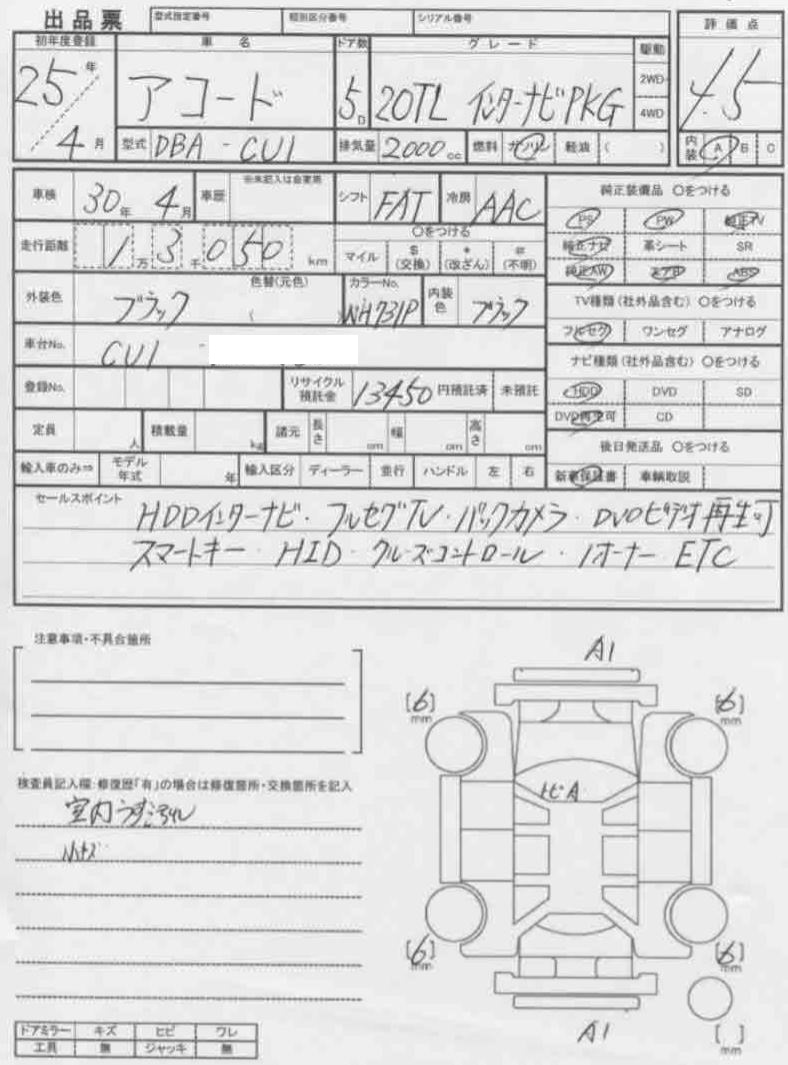 出品票 型式指定番号 類別区分番号 シリアル番号
初年度登録 車名 ドア数 グレード 駆動 評価点
25年 アコード 5D 20TL インターナビPKG 2WD 4.5
4WD
4月 型式 DBA - CU1 排気量 2000cc 燃料 ガソリン 軽油 ( ) 内装 A B C
車検 30年 4月 車歴 ※未記入は自家用 シフト FAT 冷房 AAC 純正装備品 ○をつける
PS PW 純正TV
走行距離 1万3千050km ○をつける
マイル $(交換) *(改ざん) #(不明)
純正ナビ 革シート SR
純正AW エアB ABS
外装色 ブラック 色替(元色) ( カラーNo. NH731P 内装色 ブラック
TV種類(社外品含む) ○をつける
フルセグ ワンセグ アナログ
車台No. CU1 -
ナビ種類(社外品含む) ○をつける
登録No. リサイクル預託金 13450 円預託済 未預託
HDD DVD SD
DVD再生可 CD
定員 人 積載量 kg 諸元 長さ cm 幅 cm 高さ cm
後日発送品 ○をつける
輸入車のみ⇒ モデル年式 年 輸入区分 ディーラー 並行 ハンドル 左 右
新車保証書 車輌取説
セールスポイント
HDDインターナビ・フルセグTV・バックカメラ・DVDビデオ再生可
スマートキー・HID・クルーズコントロール・1オーナー ETC
注意事項・不具合箇所
A1
[6]mm [6]mm
検査員記入欄:修復歴「有」の場合は修復箇所・交換箇所を記入
トビA
室内うすごれ
小キズ
[6]mm [6]mm
A1
[ ]mm
ドアミラー キズ ヒビ ワレ
工具 無 ジャッキ 無